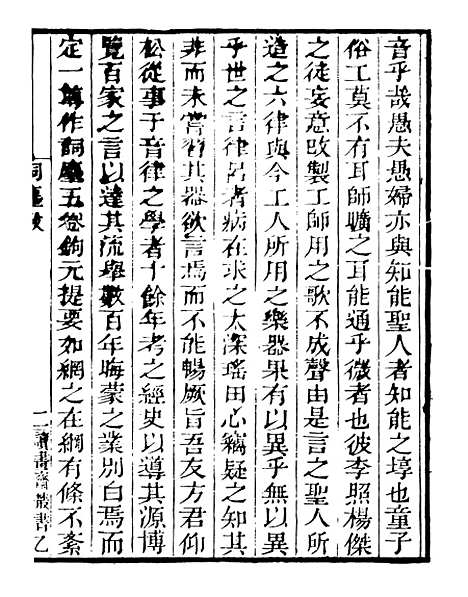 音乎哉愚夫愚婦亦與知能聖人者知能之埻也童子
俗工莫不有耳師曠之耳能通乎微者也彼李照楊傑
之徒妄意改製工師用之歌不成聲由是言之聖人所
造之六律與今工人所用之樂器果有以異乎無以異
乎世之言律呂者病在求之太深瑤田心竊疑之知其
非而未嘗習其器欲言焉而不能暢厥旨吾友方君仰
松從事于音律之學者十餘年考之經史以導其源博
覽百家之言以達其流舉數百年晦蒙之業別白焉而
定一篇作詞麈五卷鉤元提要如網之在綱有條不紊
詞麈敘
二讀畫齋叢書乙